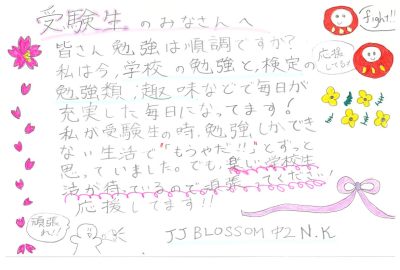 受験生のみなさんへ
fight!!
皆さん勉強は順調ですか?
応援してるよ
私は今、学校の勉強と、検定の
勉強類、趣味などで毎日が
充実した毎日になってます!
私が受験生の時、勉強しかでき
ない生活で"もうやだ!!"とずっと
思っていました。でも、楽しい学校生
活が待っているので頑張ってください!
応援してます!!
頑張れ!!
JJ BLOSSOM 中2 N.K